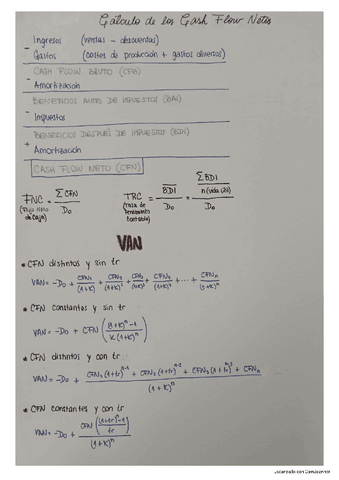 Cálculo de los Cash Flow Netos
Ingresos (ventas - descuentos)
- Gastos (costes de producción + gastos diversos)
CASH FLOW BRUTO (CFB)
- Amortización
BENEFICIOS ANTES DE IMPUESTOS (BAI)
- Impuestos
BENEFICIOS DESPUÉS DE IMPUESTOS (BDI)
+ Amortización
CASH FLOW NETO (CFN)
FNC = ΣCFN / D₀
(Flujo Neto de Caja)
TRC = BDI / D₀ = (ΣBDI / n (vida útil)) / D₀
(Tasa de Rendimiento Contable)
VAN
• CFN distintos y sin tr
VAN = -D₀ + CFN₁/(1+K) + CFN₂/(1+K)² + CFN₃/(1+K)³ + CFN₄/(1+K)⁴ + ... + CFNₙ/(1+K)ⁿ
• CFN constantes y sin tr
VAN = -D₀ + CFN [(1+K)ⁿ-1 / K(1+K)ⁿ]
• CFN distintos y con tr
VAN = -D₀ + (CFN₁(1+tr)ⁿ⁻¹ + CFN₂(1+tr)ⁿ⁻² + CFN₃(1+tr)ⁿ⁻³ + CFNₙ) / (1+K)ⁿ
• CFN constantes y con tr
VAN = -D₀ + CFN [(1+tr)ⁿ-1 / tr] / (1+K)ⁿ
Escaneado con CamScanner